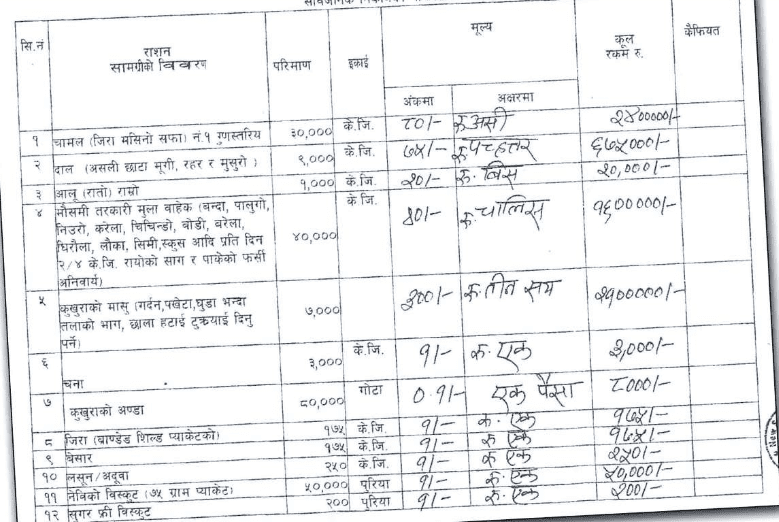 सि.नं राशन सामग्रीको विवरण परिमाण इकाई मूल्य कूल रकम रु. कैफियत
अंकमा अक्षरमा
१ चामल (जिरा मसिनो सफा) नं.१ गुणस्तरिय ३०,००० के.जि. ८०/- रु असी २४०००००/-
२ दाल (असली छाटा मूगी, रहर र मुसुरो ) ९,००० के.जि. ७५/- रु पच्हत्तर ६७५०००/-
३ आलू (रातो) राम्रो १,००० के.जि. २०/- रु. बिस २०,०००/-
४ मौसमी तरकारी मुला बाहेक (बन्दा, पालुगो, ४०,००० के.जि. ४०/- रु. चालिस १६०००००/-
निउरो, करेला, चिचिन्डो, बोडी, बरेला,
घिरौला, लौका, सिमी,स्कुस आदि प्रति दिन
२/४ के.जि. रायोको साग र पाकेको फर्सी
अनिवार्य)
५ कुखुराको मासु (गर्दन,पखेटा,घुडा भन्दा ७,००० ३००/- रु. तीन सय २१०००००/-
तलाको भाग, छाला हटाई टुक्रयाई दिनु
पर्ने)
६ चना ३,००० के.जि. १/- रु. एक ३,०००/-
७ कुखुराको अण्डा ८०,००० गोटा ०.१/- एक पैसा ८०००/-
८ जिरा (बाण्डेड शिल्ड प्याकेटको) १७५ के.जि. १/- रु. एक १७५/-
९ बेसार १७५ के.जि. १/- रु एक १७५/-
१० लसून/अदूवा २५० के.जि. १/- रु एक २५०/-
११ नेविको विस्कूट (७५ ग्राम प्याकेट) ५०,००० पुरिया १/- रु. एक ५०,०००/-
१२ सुगर फ्री विस्कुट २०० पुरिया १/- रु. एक २००/-